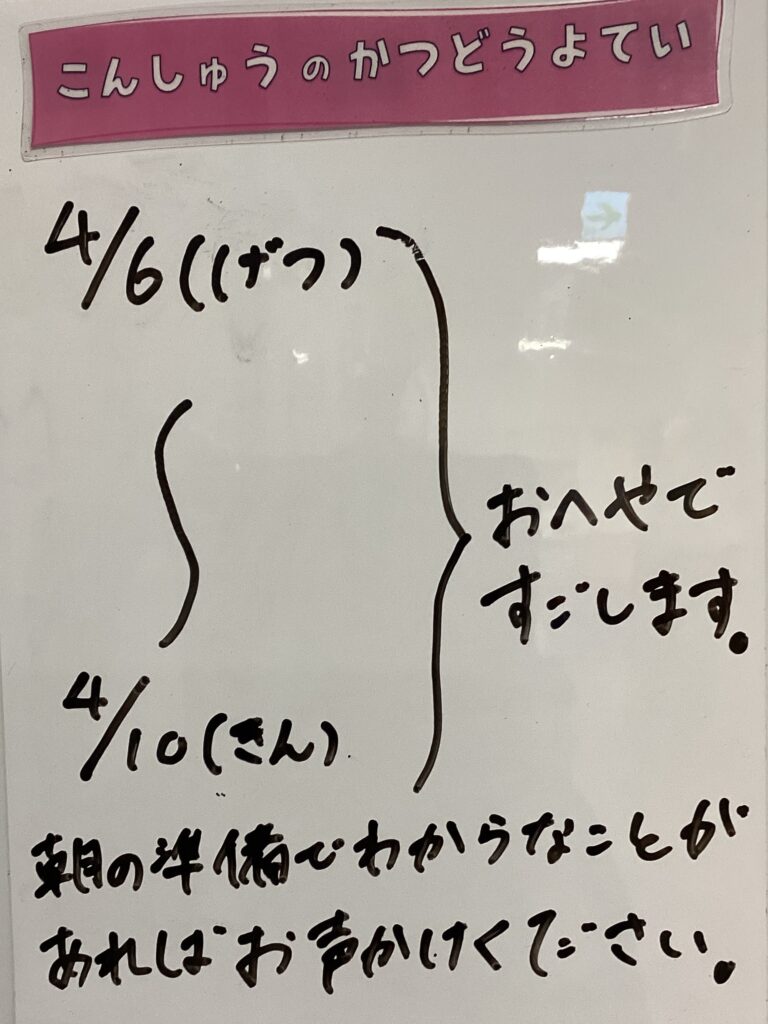 こんしゅうのかつどうよてい
4/6(げつ)
〜
4/10(きん)
おへやで
すごします。
朝の準備でわからなことが
あればお声かけください。